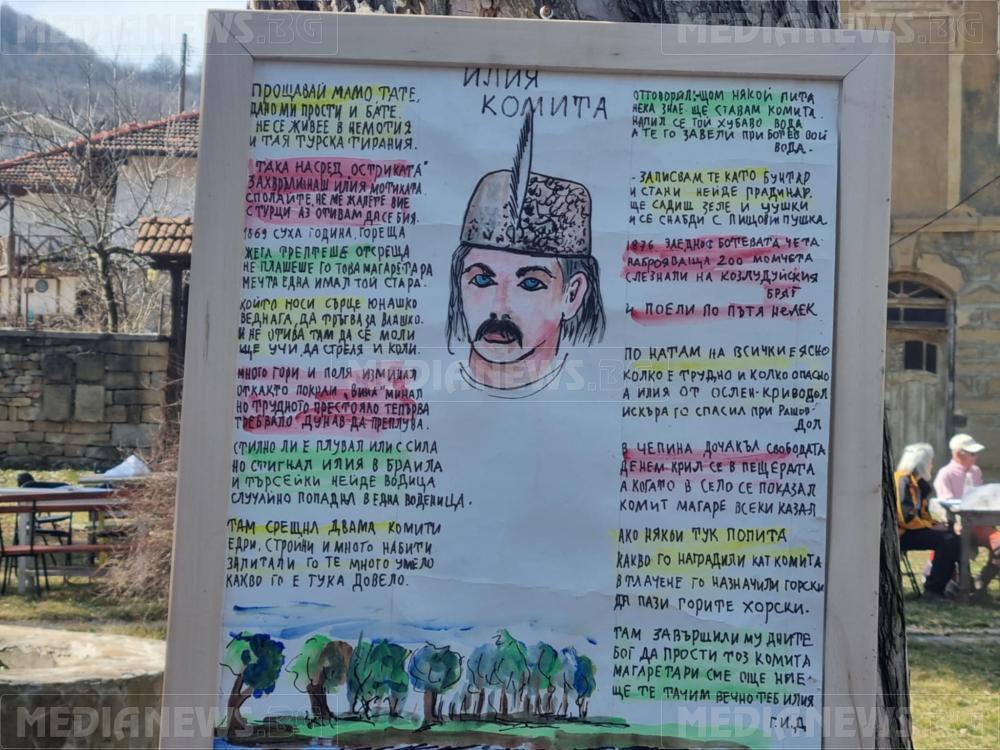 MEDIANEWS.BG
MEDIANEWS.BG
ИЛИЯ
КОМИТА
ПРОЩАВАЙ МАМО ТАТЕ,
ДАНО МИ ПРОСТИ И БАТЕ.
НЕ СЕ ЖИВЕЕ В НЕМОТИЯ
И ТАЯ ТУРСКА ТИРАНИЯ.
"ТАКА НАСРЕД ОСТРИКАТА"
ЗАХВЪРЛИ НАШ ИЛИЯ МОТИКАТА.
СПОЛАЙТЕ, НЕ МЕ ЖАЛЕТЕ ВИЕ
С ТУРЦИ АЗ ОТИВАМ ДА СЕ БИЯ.
1869 СУХА ГОДИНА, ГОРЕЩА
ЖЕГА ТРЕПТЕШЕ ОТСРЕЩА
НЕ ПЛАШЕШЕ ГО ТОВА МАГАРЕТАРА
МЕЧТА ЕДНА ИМАЛ ТОЙ СТАРА.
КОЙТО НОСИ СЪРЦЕ ЮНАШКО
ВЕДНАГА, ДА ТРЪГВА ЗА ВЛАШКО.
И НЕ ОТИВА ТАМ ДА СЕ МОЛИ
ЩЕ УЧИ ДА СТРЕЛЯ И КОЛИ.
МНОГО ГОРИ И ПОЛЯ ИЗМИНАЛ
ОТКАКТО ПОКРАЙ "ВИНА" МИНАЛ
НО ТРУДНОТО ПРЕСТОЯЛО ТЕПЪРВА
ТРЕБВАЛО ДУНАВ ДА ПРЕПЛУВА.
СТИЛНО ЛИ Е ПЛУВАЛ ИЛИ С СИЛА
НО СТИГНАЛ ИЛИЯ В БРАИЛА
И ТЪРСЕЙКИ НЕЙДЕ ВОДИЦА
СЛУЧАЙНО ПОПАДНАЛ В ЕДНА ВОДЕНИЦА.
ТАМ СРЕЩНАЛ ДВАМА КОМИТИ
ЕДРИ, СТРОЙНИ И МНОГО НАБИТИ
ЗАПИТАЛИ ГО ТЕ МНОГО УМЕЛО
КАКВО ГО Е ТУКА ДОВЕЛО.
ОТГОВОРИЛ: ЩОМ НЯКОЙ ПИТА
НЕКА ЗНАЕ, ЩЕ СТАВАМ КОМИТА.
НАПИЛ СЕ ТОЙ ХУБАВО ВОДА
А ТЕ ГО ЗАВЕЛИ ПРИ БОТЕВ ВОЙ
ВОДА.
- ЗАПИСВАМ ТЕ КАТО БУНТАР
И СТАНИ НЕЙДЕ ГРАДИНАР.
ЩЕ САДИШ ЗЕЛЕ И ЧУШКИ
И СЕ СНАБДИ С ПИЩОВ И ПУШКА.
1876 ЗАЕДНО С БОТЕВАТА ЧЕТА
НАБРОЯВАЩА 200 МОМЧЕТА
СЛЕЗНАЛИ НА КОЗЛУДУЙСКИЯ
БРЯГ
И ПОЕЛИ ПО ПЪТЯ НЕЛЕК
ПО НАТАМ НА ВСИЧКИ Е ЯСНО
КОЛКО Е ТРУДНО И КОЛКО ОПАСНО
А ИЛИЯ ОТ ОСЛЕН-КРИВОДОЛ
ИСКЪРА ГО СПАСИЛ ПРИ РАШОВ
ДОЛ
В ЧЕПИНА ДОЧАКЪЛ СВОБОДАТА
ДЕНЕМ КРИЛ СЕ В ПЕЩЕРАТА
А КОГАТО В СЕЛО СЕ ПОКАЗАЛ
КОМИТ МАГАРЕ ВСЕКИ КАЗАЛ
АКО НЯКОИ ТУК ПОПИТА
КАКВО ГО НАГРАДИЛИ КАТ КОМИТА
В ТЛАЧЕНЕ ГО НАЗНАЧИЛИ ГОРСКИ
ДА ПАЗИ ГОРИТЕ ХОРСКИ.
ТАМ ЗАВЪРШИЛИ МУ ДНИТЕ
БОГ ДА ПРОСТИ ТОЗ КОМИТА
МАГАРЕТАРИ СМЕ ОЩЕ НИЕ
ЩЕ ТЕ ТАЧИМ ВЕЧНО ТЕБ ИЛИЯ
Г.И.Д
MEDIANEWS.BG
MEDIANEWS.BG
MEDIANEWS.BG